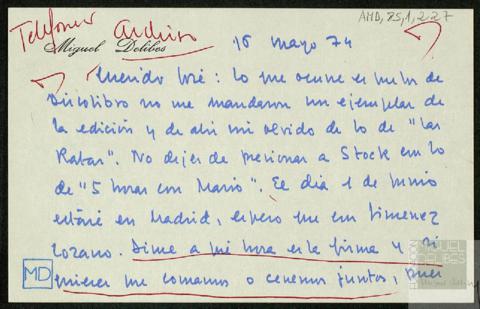 Telefonos Archivo AMD, 25, 1, 2.27
Miguel Delibes 16 mayo 74
Querido José: Lo que ocurre es que los de
Discolibro no me mandaron un ejemplar de
la edición y de ahí mi olvido de lo de "Las
Ratas". No dejes de presionar a Stock con lo
de "5 horas con Mario". El día 1 de junio
estaré en Madrid, espero que con Jimenez
Lozano. Dime a qué hora es la firma y si
quieres que comamos o cenemos juntos, pues
MD
MIGUEL
DELIBES